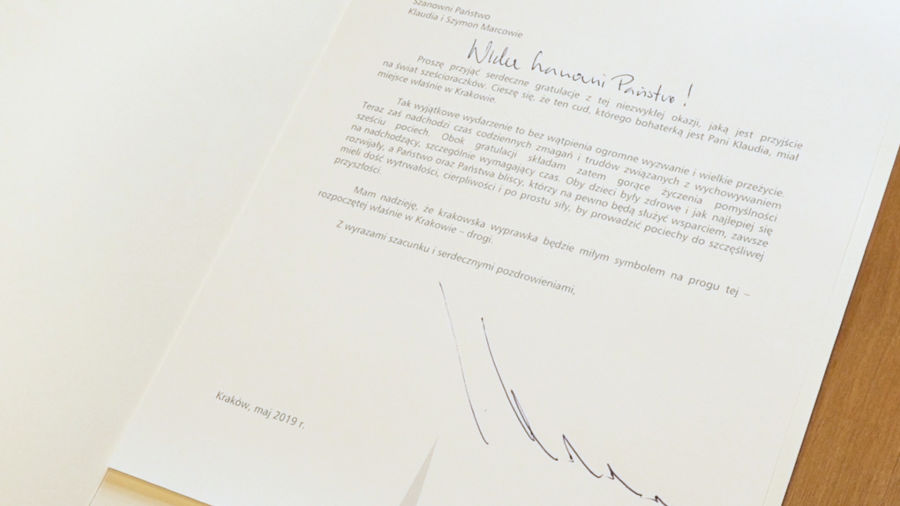 Szanowni Państwo
Klaudia i Szymon Marcowie
Wielce Szanowni Państwo!
Proszę przyjąć serdeczne gratulacje z tej niezwykłej okazji, jaką jest przyjście
na świat sześcioraczków. Cieszę się, że ten cud, którego bohaterką jest Pani Klaudia, miał
miejsce właśnie w Krakowie.
Tak wyjątkowe wydarzenie to bez wątpienia ogromne wyzwanie i wielkie przeżycie.
Teraz zaś nadchodzi czas codziennych zmagań i trudów związanych z wychowywaniem
sześciu pociech. Obok gratulacji składam zatem gorące życzenia pomyślności
na nadchodzący, szczególnie wymagający czas. Oby dzieci były zdrowe i jak najlepiej się
rozwijały, a Państwo oraz Państwa bliscy, którzy na pewno będą służyć wsparciem, zawsze
mieli dość wytrwałości, cierpliwości i po prostu siły, by prowadzić pociechy do szczęśliwej
przyszłości.
Mam nadzieję, że krakowska wyprawka będzie miłym symbolem na progu tej –
rozpoczętej właśnie w Krakowie – drogi.
Z wyrazami szacunku i serdecznymi pozdrowieniami,
Kraków, maj 2019 r.